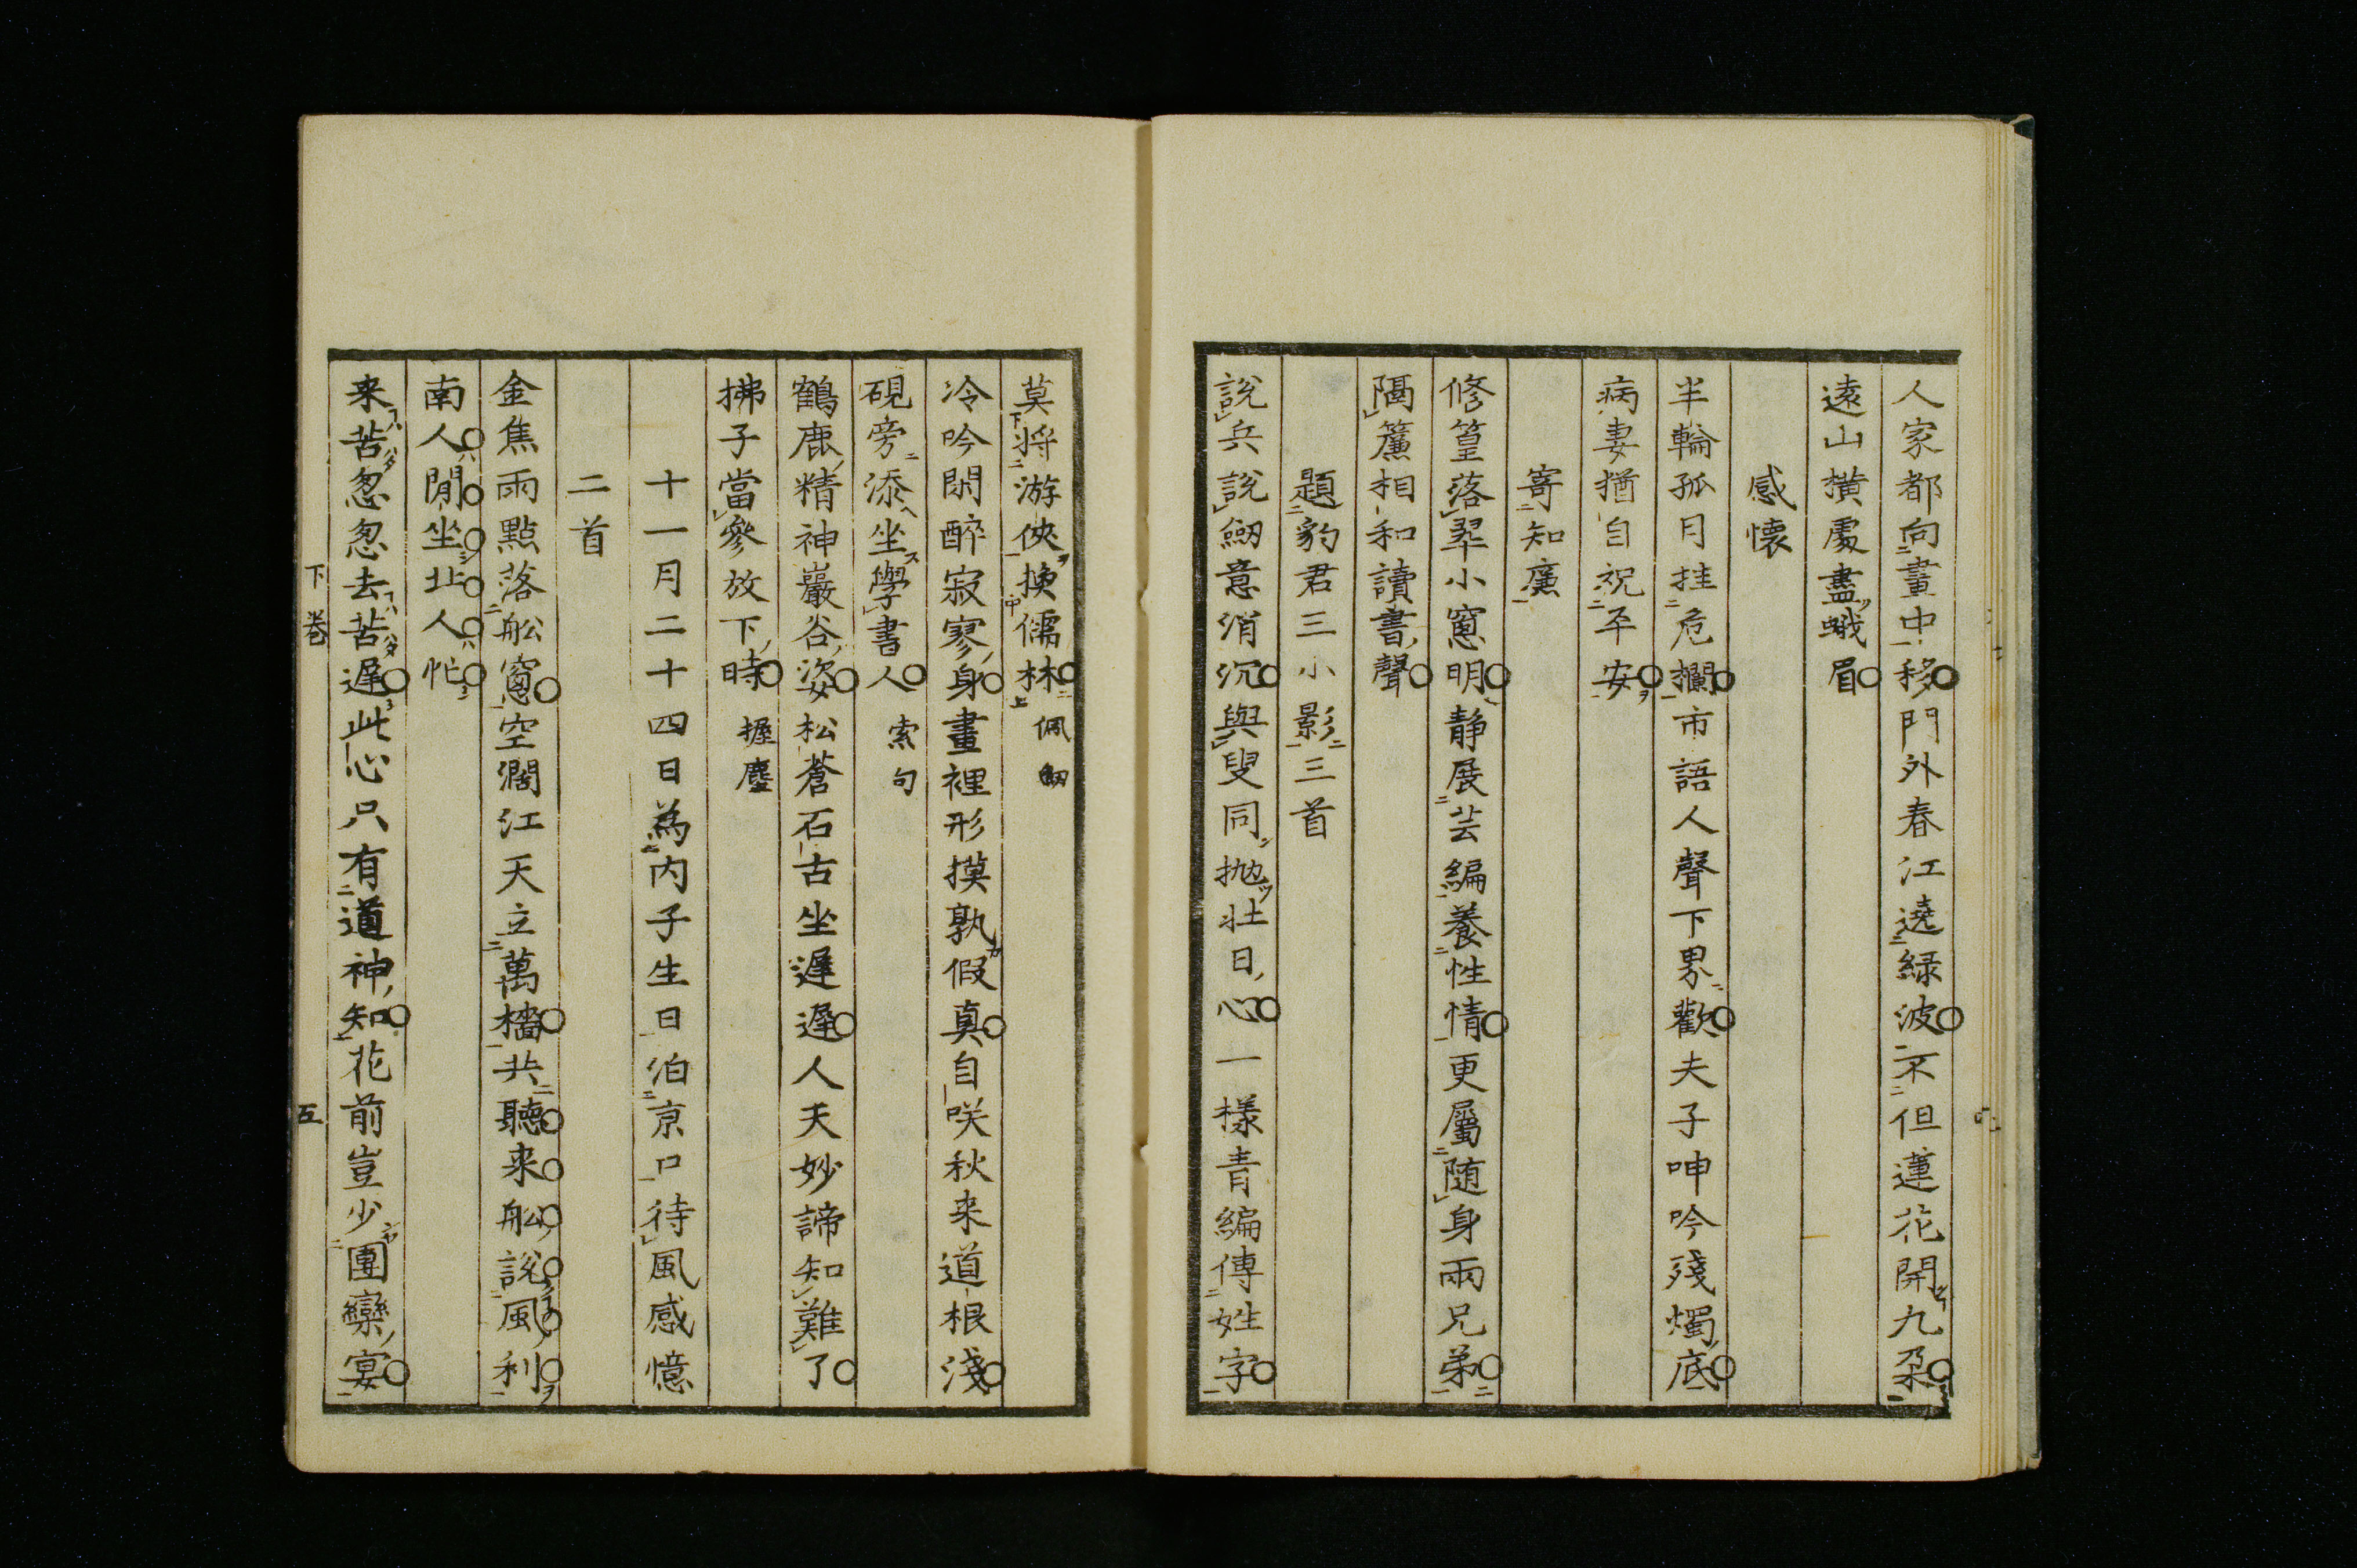 人家都向畫中移門外春江遶緑波不但蓮花開九朶
遠山横處盡蛾眉
感懷
半輪孤月挂危欄市語人聲下界歡夫子呻吟殘燭底
病妻猶自祝平安
寄知廣
修篁落翠小窻明静展芸編養性情更屬随身兩兄弟
隔簾相和讀書聲
題豹君三小影三首
說兵說劒意消沉與叟同抛壮日心一樣青編傳姓字
莫将游俠換儒林 佩劒
冷吟閑醉寂寥身畫裡形摸孰假真自咲秋来道根淺
硯旁添坐學書人 索句
鶴鹿精神巖谷姿松蒼石古坐遲遲人天妙諦知難了
拂子當參放下時 握麈
十一月二十四日為内子生日泊京口待風感憶
二首
金焦雨點落舩窻空濶江天立萬檣共聽来舩說風利
南人閒坐北人忙
来苦怱怱去苦遲此心只有道神知花前豈少團欒宴
下巻
五